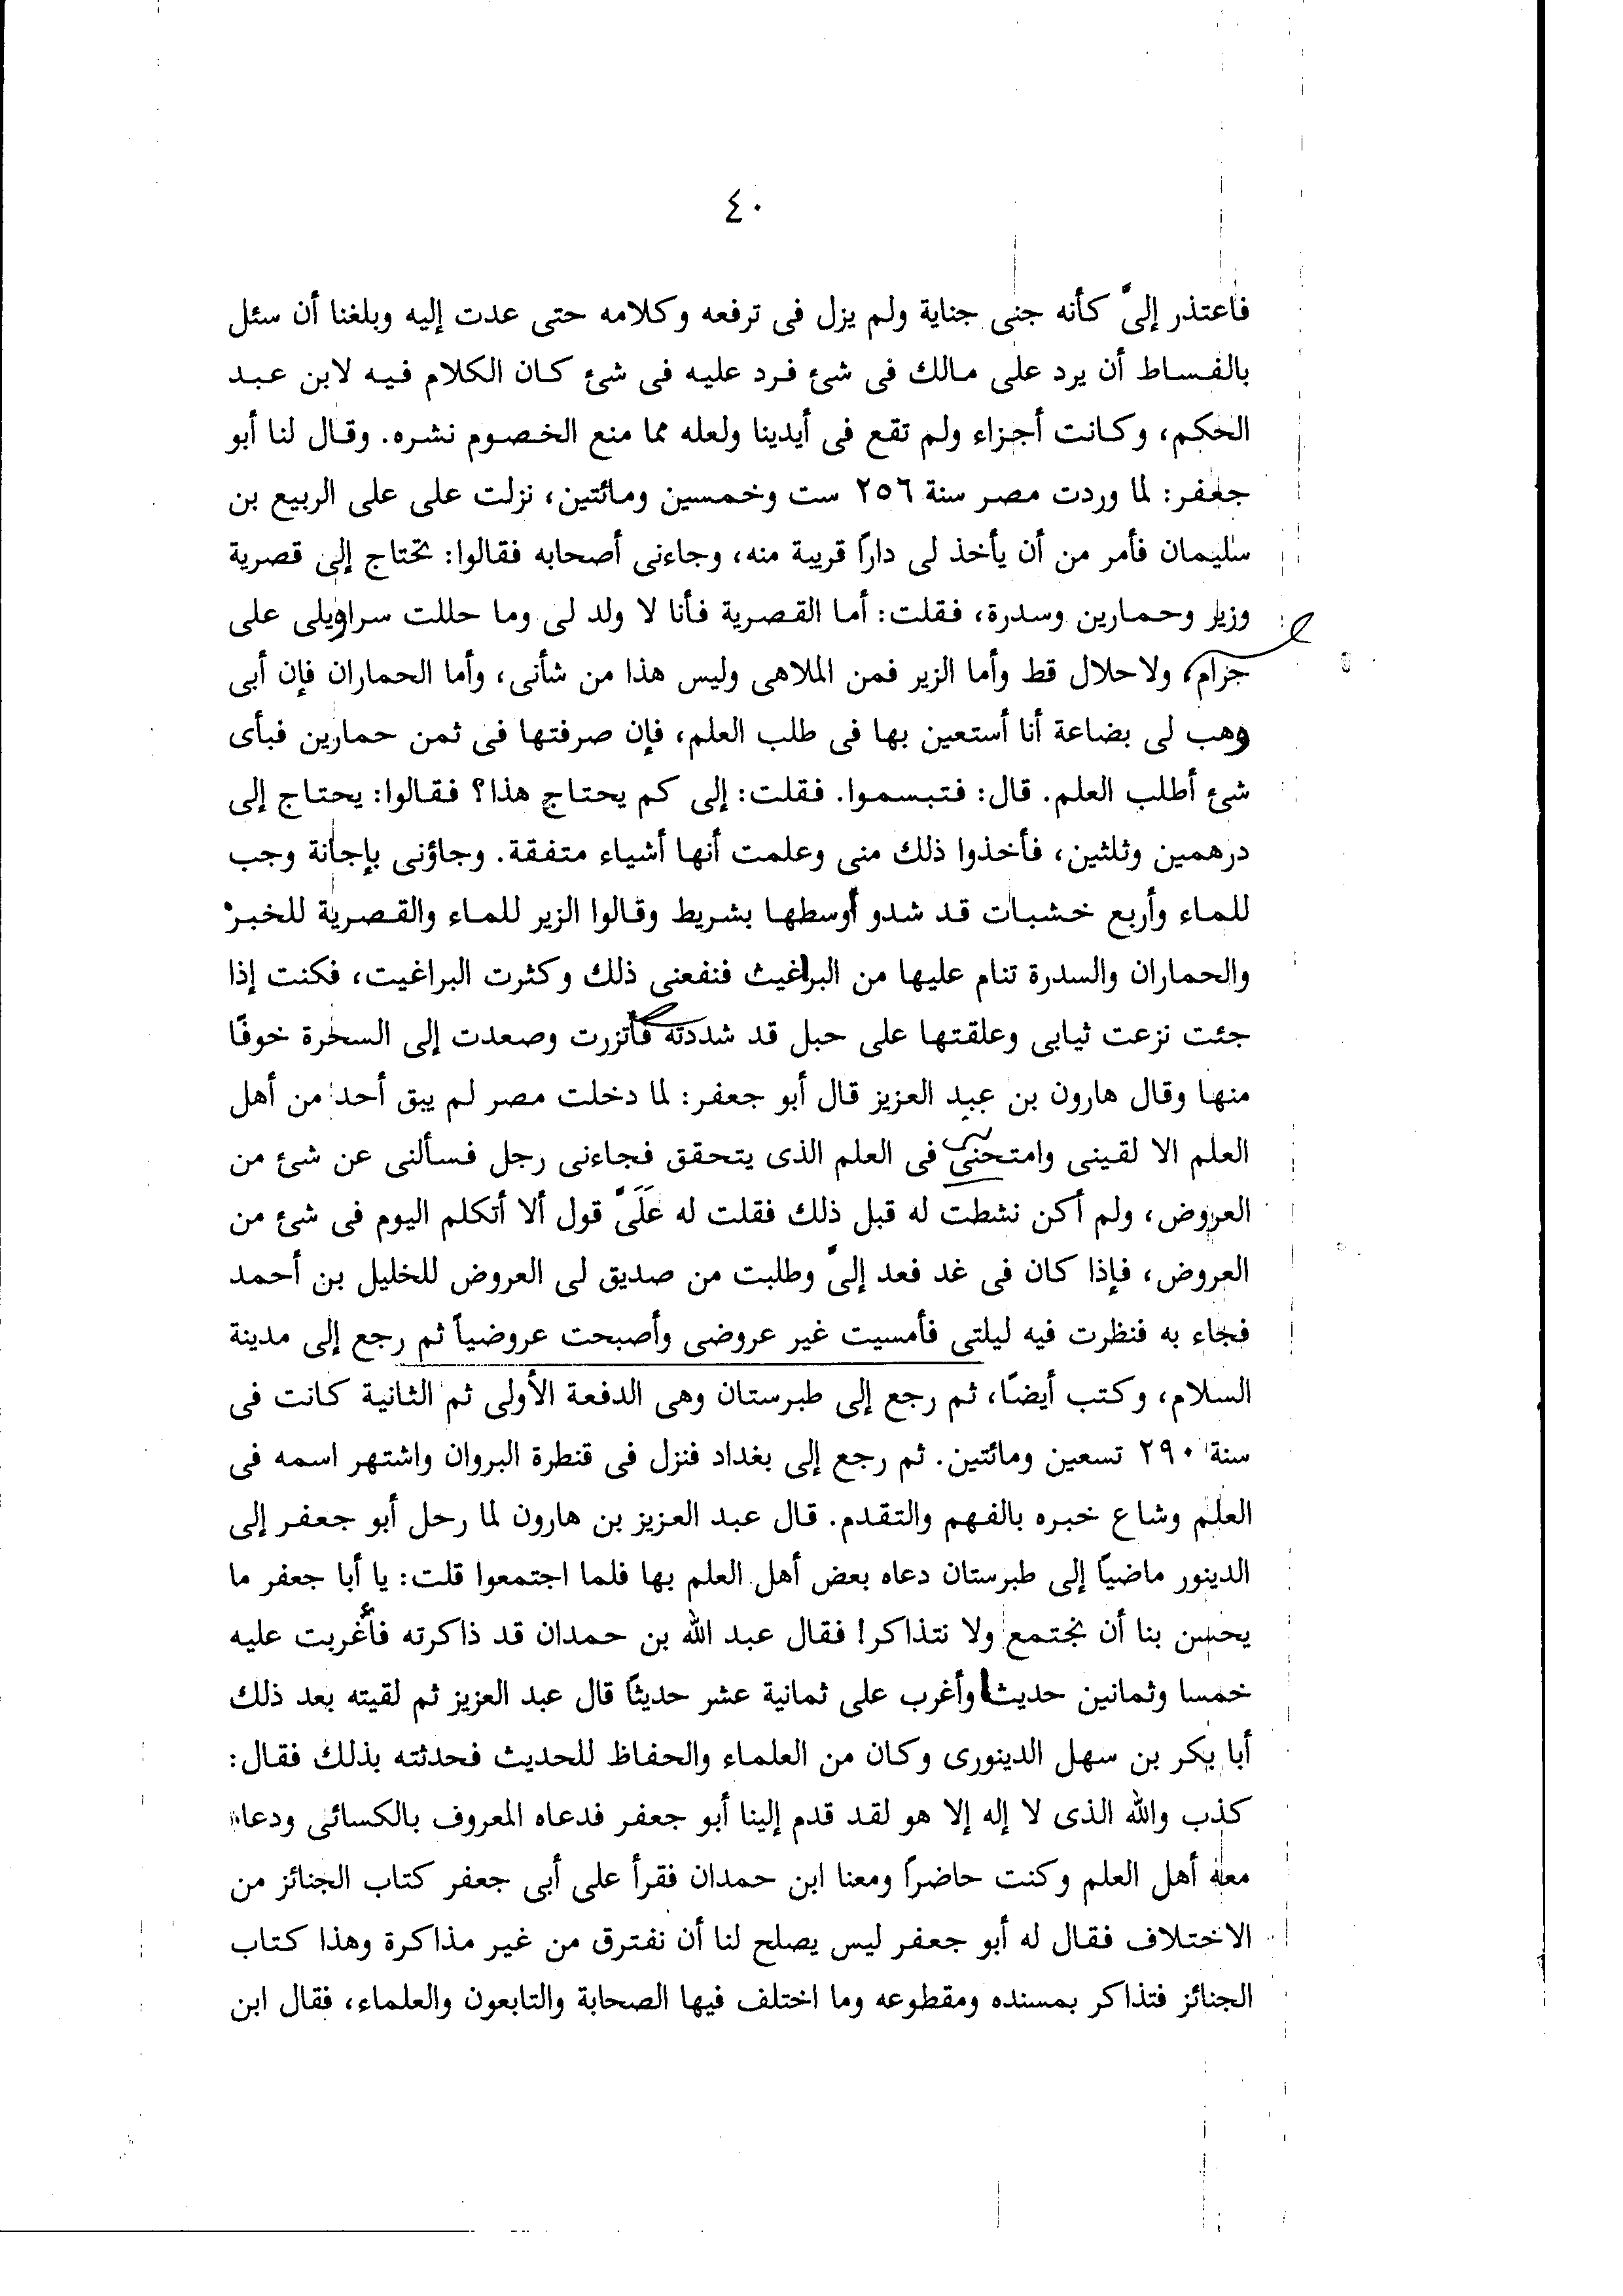 ٤٠
فاعتذر إلىَّ كأنه جنى جناية ولم يزل فى ترفعه وكلامه حتى عدت إليه وبلغنا أن سئل
بالفساط أن يرد على مالك فى شئ فرد عليه فى شئ كان الكلام فيه لابن عبد
الحكم، وكانت أجزاء ولم تقع فى أيدينا ولعله مما منع الخصوم نشره. وقال لنا أبو
جعفر: لما وردت مصر سنة ٢٥٦ ست وخمسين ومائتين، نزلت على على الربيع بن
سليمان فأمر من أن يأخذ لى دارًا قريبة منه، وجاءنى أصحابه فقالوا: تحتاج إلى قصرية
وزير وحمارين وسدرة، فقلت: أما القصرية فأنا لا ولد لى وما حللت سراويلى على
حرام، ولاحلال قط وأما الزير فمن الملاهى وليس هذا من شأنى، وأما الحماران فإن أبى
وهب لى بضاعة أنا أستعين بها فى طلب العلم، فإن صرفتها فى ثمن حمارين فبأى
شئ أطلب العلم. قال: فتبسموا. فقلت: إلى كم يحتاج هذا؟ فقالوا: يحتاج إلى
درهمين وثلثين، فأخذوا ذلك منى وعلمت أنها أشياء متفقة. وجاؤنى بإجانة وجب
للماء وأربع خشبات قد شدو أوسطها بشريط وقالوا الزير للماء والقصرية للخبز
والحماران والسدرة تنام عليها من البراغيث فنفعنى ذلك وكثرت البراغيت، فكنت إذا
جئت نزعت ثيابى وعلقتها على حبل قد شددته فاتزرت وصعدت إلى السحرة خوفًا
منها وقال هارون بن عبد العزيز قال أبو جعفر: لما دخلت مصر لم يبق أحد من أهل
العلم الا لقينى وامتحنى فى العلم الذى يتحقق فجاءنى رجل فسألنى عن شئ من
العروض، ولم أكن نشطت له قبل ذلك فقلت له عَلَىَّ قول ألا أتكلم اليوم فى شئ من
العروض، فإذا كان فى غد فعد إلىَّ وطلبت من صديق لى العروض للخليل بن أحمد
فجاء به فنظرت فيه ليلتى فأمسيت غير عروضى وأصبحت عروضياً ثم رجع إلى مدينة
السلام، وكتب أيضًا، ثم رجع إلى طبرستان وهى الدفعة الأولى ثم الثانية كانت فى
سنة ٢٩٠ تسعين ومائتين. ثم رجع إلى بغداد فنزل فى قنطرة البروان واشتهر اسمه فى
العلم وشاع خبره بالفهم والتقدم. قال عبد العزيز بن هارون لما رحل أبو جعفر إلى
الدينور ماضيًا إلى طبرستان دعاه بعض أهل العلم بها فلما اجتمعوا قلت: يا أبا جعفر ما
يحسن بنا أن نجتمع ولا نتذاكر! فقال عبد الله بن حمدان قد ذاكرته فأغربت عليه
خمسا وثمانين حديثا وأغرب على ثمانية عشر حديثًا قال عبد العزيز ثم لقيته بعد ذلك
أبا بكر بن سهل الدينورى وكان من العلماء والحفاظ للحديث فحدثته بذلك فقال:
كذب والله الذى لا إله إلا هو لقد قدم إلينا أبو جعفر فدعاه المعروف بالكسائى ودعا
معه أهل العلم وكنت حاضرًا ومعنا ابن حمدان فقرأ على أبى جعفر كتاب الجنائز من
الاختلاف فقال له أبو جعفر ليس يصلح لنا أن نفترق من غير مذاكرة وهذا كتاب
الجنائز فتذاكر بمسنده ومقطوعه وما اختلف فيها الصحابة والتابعون والعلماء، فقال ابن